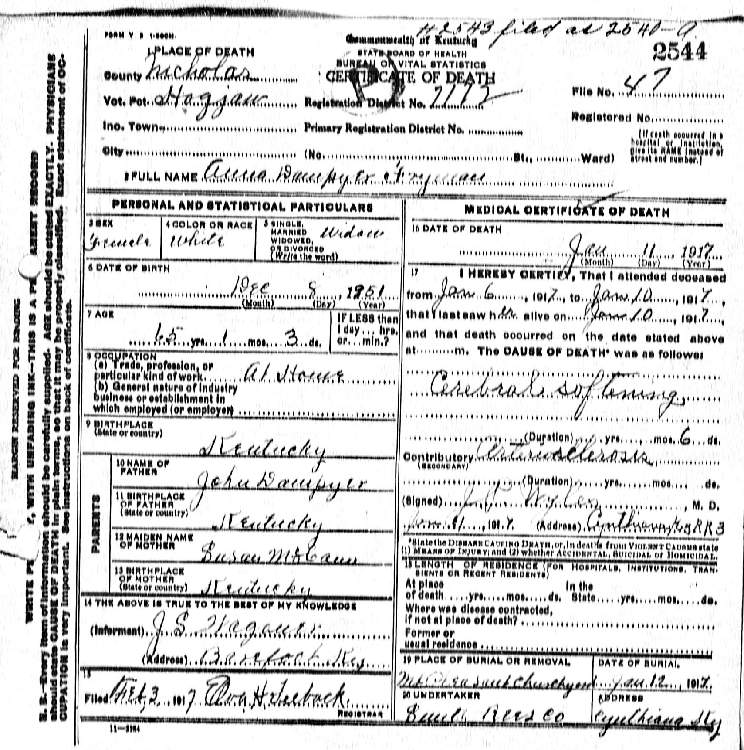 #2543 filed as 2540-a
FORM V S
Commonwealth of Kentucky
STATE BOARD OF HEALTH
BUREAU OF VITAL STATISTICS
CERTIFICATE OF DEATH
2544
1 PLACE OF DEATH
County Nicholas
Vot. Pct.
Registration District No.
File No. 47
Inc. Town
Primary Registration District No.
Registered No.
City (No. St., Ward)
(If death occurred in a hospital or institution, give its NAME instead of street and number.)
2 FULL NAME Anna Dampyer Fryman
PERSONAL AND STATISTICAL PARTICULARS
3 SEX
Female
4 COLOR OR RACE
White
5 SINGLE, MARRIED WIDOWED, OR DIVORCED (Write the word)
Widow
6 DATE OF BIRTH
Dec 8, 1851
(Month) (Day) (Year)
7 AGE
65 yrs. 1 mos. 3 ds.
IF LESS than 1 day hrs. or min.?
8 OCCUPATION
(a) Trade, profession, or particular kind of work At Home
(b) General nature of industry business or establishment in which employed (or employer)
9 BIRTHPLACE
(State or country)
Kentucky
PARENTS
10 NAME OF FATHER
John Dampyer
11 BIRTHPLACE OF FATHER (State or country)
Kentucky
12 MAIDEN NAME OF MOTHER
Susan McCann
13 BIRTHPLACE OF MOTHER (State or country)
Kentucky
14 THE ABOVE IS TRUE TO THE BEST OF MY KNOWLEDGE
(Informant) J. S. Wagoner
(Address) Barefoot Ky
15
Filed Feb 3, 1917
REGISTRAR
MEDICAL CERTIFICATE OF DEATH
16 DATE OF DEATH
Jan 11 1917
(Month) (Day) (Year)
17 I HEREBY CERTIFY, That I attended deceased
from Jan 6, 1917, to Jan 10, 1917,
that I last saw h alive on Jan 10, 1917,
and that death occurred on the date stated above
at m. The CAUSE OF DEATH* was as follows:
Cerebral softening
(Duration) yrs. mos. 6 ds.
Contributory Arteriosclerosis
(SECONDARY)
(Duration) yrs. mos. ds.
(Signed) M. D.
1917 (Address) Cynthiana Ky RR3
*State the DISEASE CAUSING DEATH, or, in deaths from VIOLENT CAUSES state
(1) MEANS OF INJURY; and (2) whether ACCIDENTAL, SUICIDAL or HOMICIDAL.
18 LENGTH OF RESIDENCE (FOR HOSPITALS, INSTITUTIONS, TRANSIENTS OR RECENT RESIDENTS)
At place of death yrs. mos. ds. In the State yrs. mos. ds.
Where was disease contracted, if not at place of death?
Former or usual residence
19 PLACE OF BURIAL OR REMOVAL
Mt Pleasant Churchyard
DATE OF BURIAL
Jan 12, 1917
20 UNDERTAKER
Smith Rees Co
ADDRESS
Cynthiana Ky
MARGIN RESERVED FOR BINDING